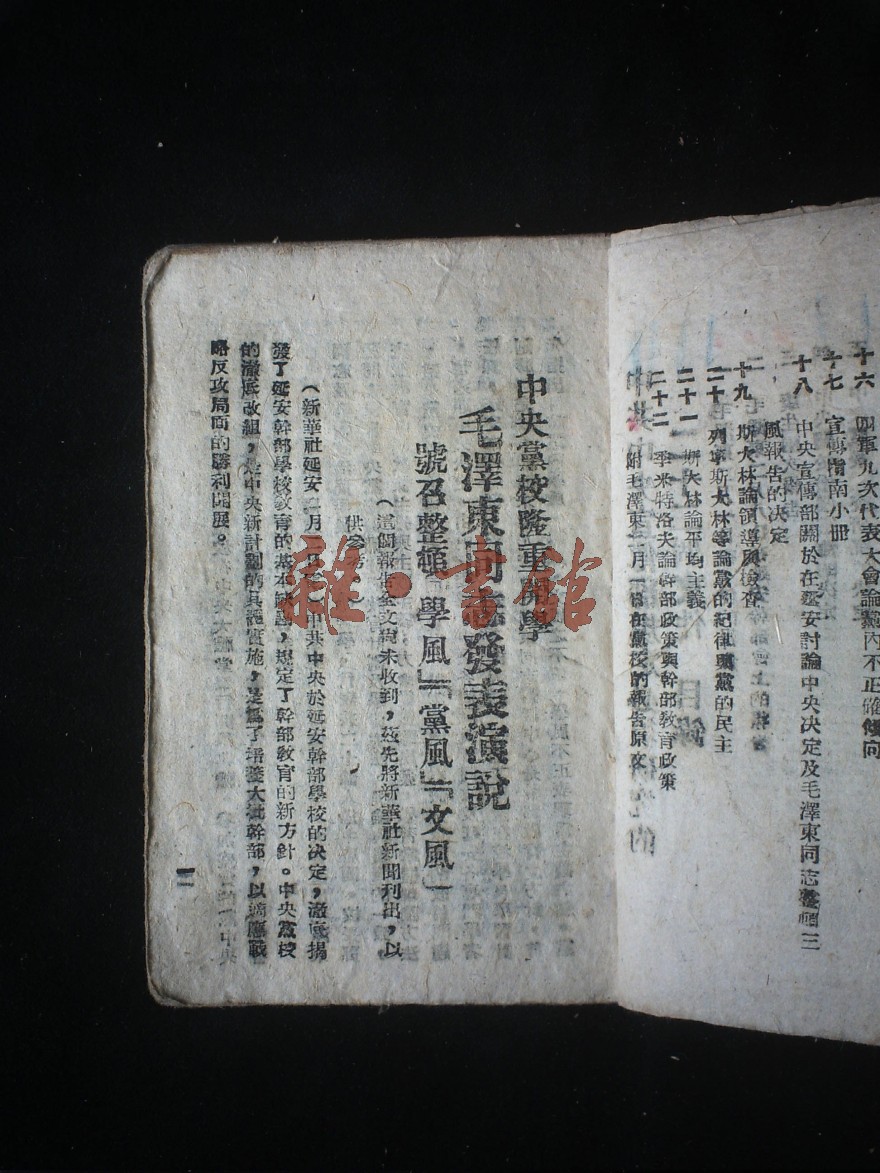 十六　四軍九次代表大會論黨內不正確傾向
十七　宣傳指南小冊
十八　中央宣傳部關於在延安討論中央决定及毛澤東同志整頓三
風報告的决定
十九　斯大林論領導與檢查
二十　列寧斯大林等論黨的紀律與黨的民主
二十一　斯大林論平均主義
二十二　季米特洛夫論幹部政策與幹部教育政策
附毛澤東二月一日在黨校的報告原文
中央黨校隆重開學
毛澤東同志發表演說
號召整頓「學風」「黨風」「文風」
（這個報告全文尙未收到，茲先將新華社新聞刊出，以
供參考。）
（新華社延安二月 日 ）（中共中央於延安幹部學校的决定，澈底揭
發了延安幹部學校教育的基本缺點，規定了幹部教育的新方針。中央黨校
的澈底改組，是中央新計劃的具體實施，是爲了培養大批幹部，以適應戰
略反攻局面的勝利開展。
一
雜·書館